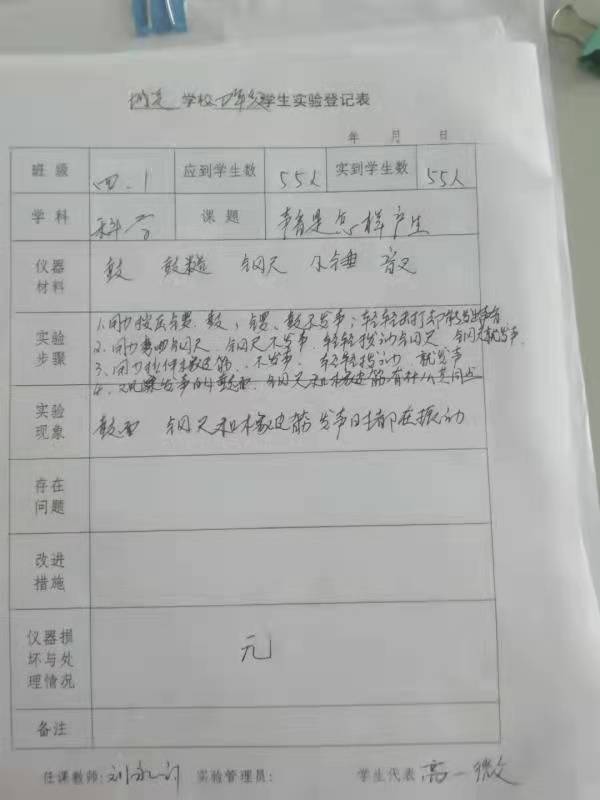 学校四年级学生实验登记表
年 月 日
班级 四.1 应到学生数 55人 实到学生数 55人
学科 科学 课题 声音是怎样产生
仪器材料 鼓 鼓槌 钢尺 小锤 音叉
实验步骤 1.用力按压锣、鼓,锣、鼓不发声;轻轻击打却能发出声音
2.用力弯曲钢尺 钢尺不发声 轻轻拨动钢尺 钢尺就发声.
3.用力拉伸橡皮筋、不发声 轻轻拨动 就发声
4.观察发声的 钢尺和橡皮筋有什么共同点
实验现象 鼓面 钢尺和橡皮筋发声时都在振动
存在问题
改进措施
仪器损坏与处理情况 无
备注
任课教师:刘永 实验管理员: 学生代表:高一